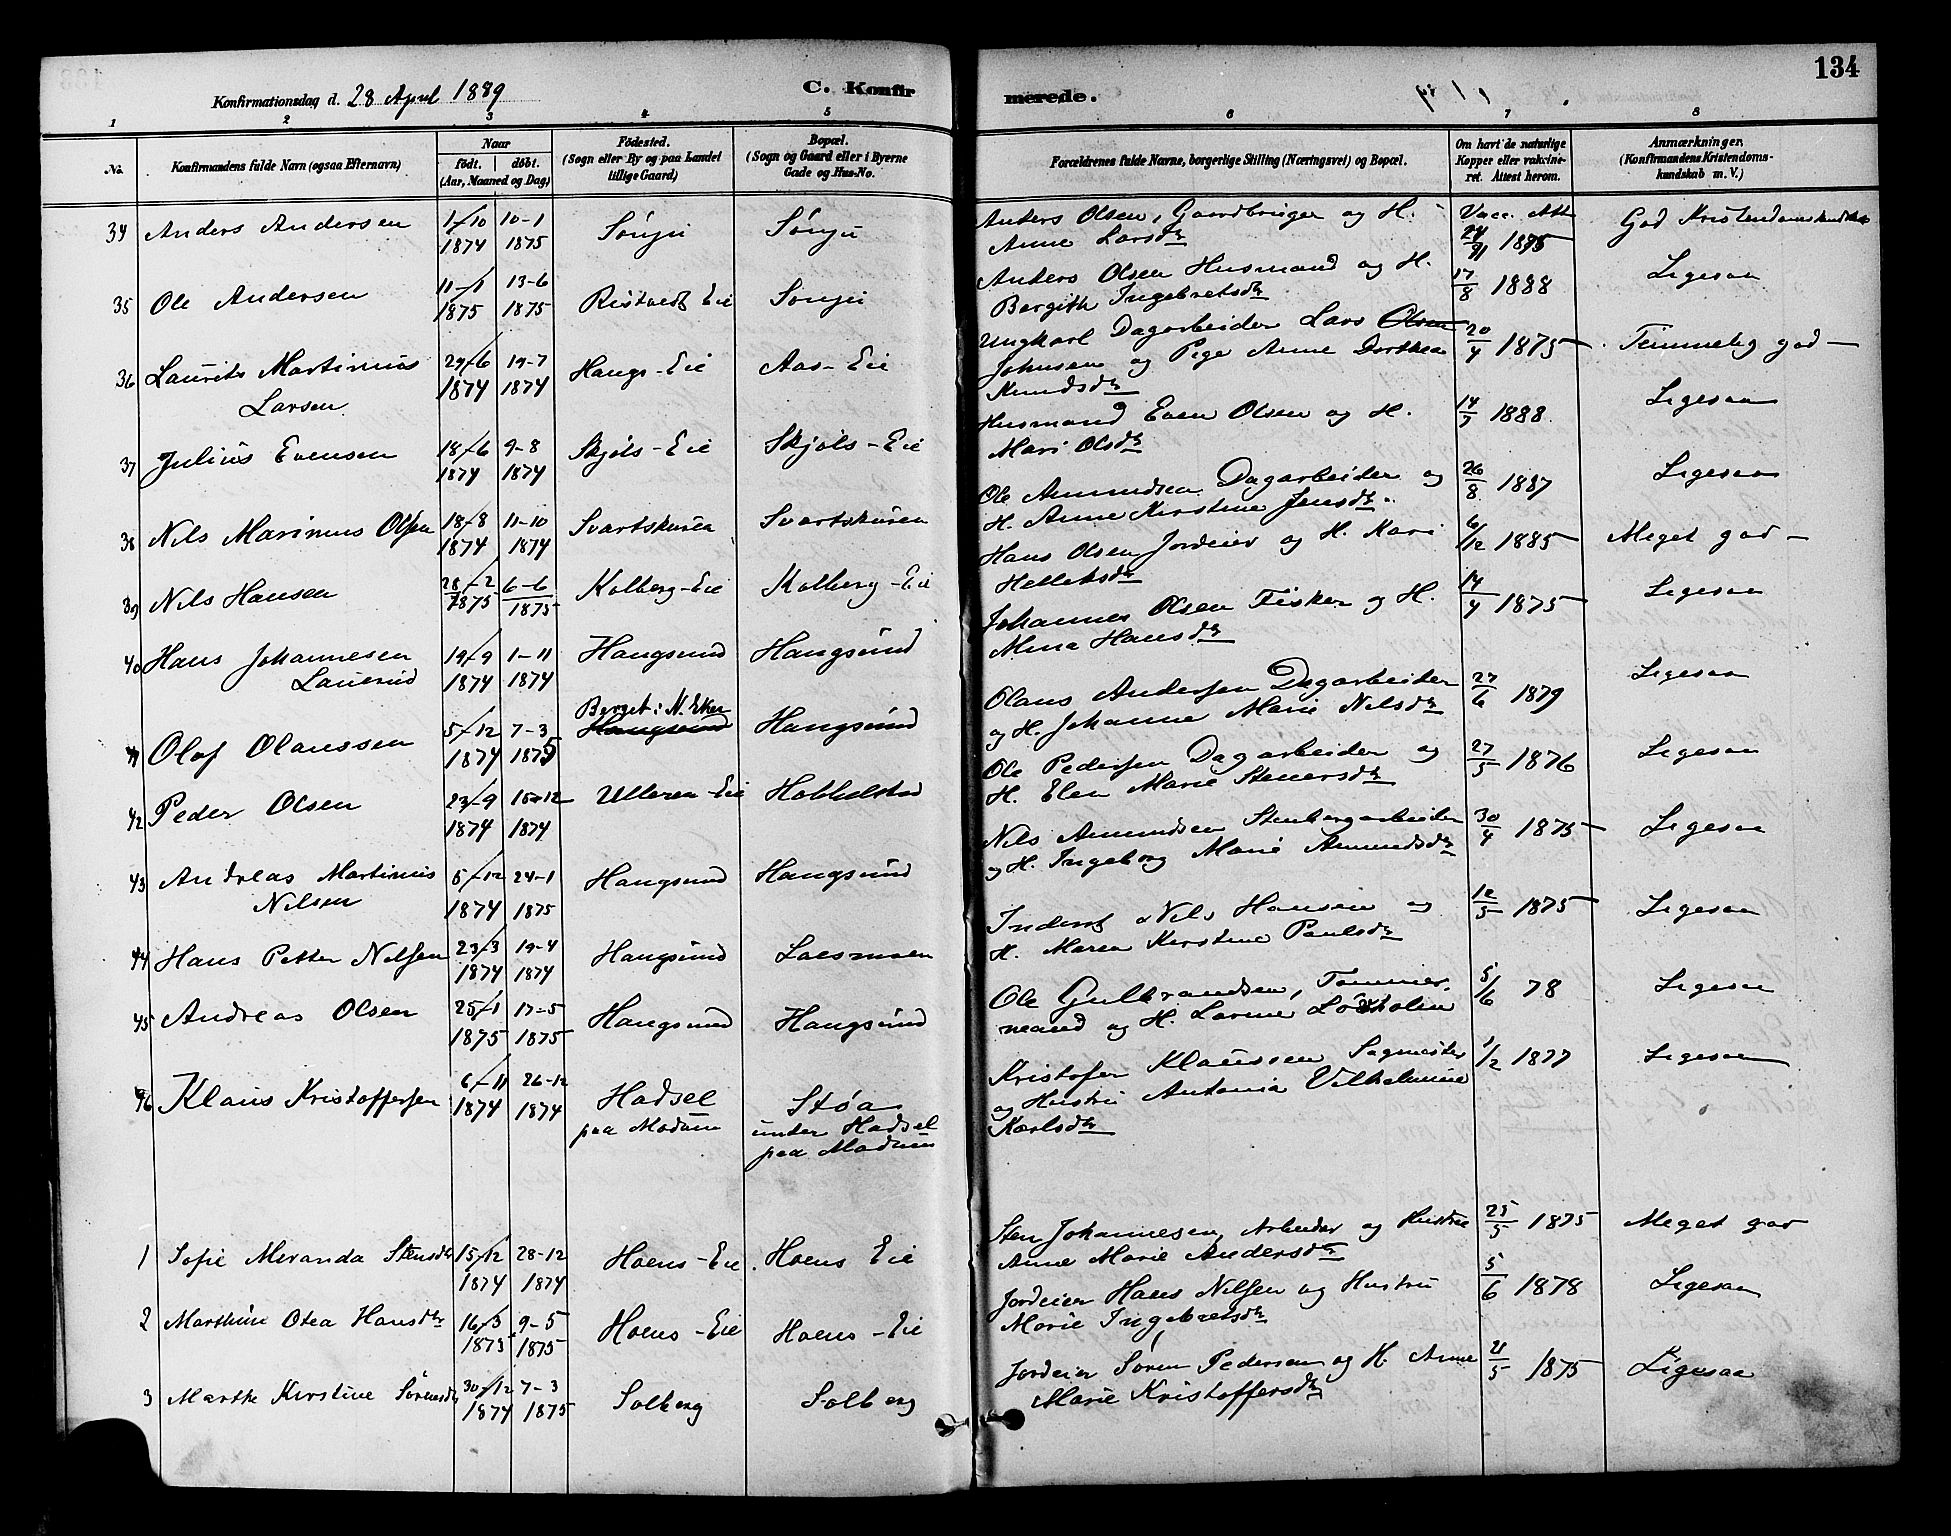 134
Konfirmationsdag d. 28 April 1889
C. Konfirmerede.
1 2 3 4 5 6 7 8
No. Konfirmandens fulde Navn (ogsaa Efternavn) Naar födt. döbt. (Aar, Maaned og Dag) Födested. (Sogn eller By og paa Landet tillige Gaard) Bopæl. (Sogn og Gaard eller i Byerne Gade og Hus-No. Forældrenes fulde Navne, borgerlige Stilling (Næringsvei) og Bopæl. Om havt de naturlige Kopper eller vaksineret. Attest herom. Anmærkninger. (Konfirmandens Kristendomskundskab m. V.)
34 Anders Andersen 1-10 1874 10-1 1875 Sönju Sönju Anders Olsen, Gaardbruger og H. Anne Larsdtr Vacc. Att 1875 God Kristendomskundskab
35 Ole Andersen 11-1 1875 13-6 1875 Ristvedt Eie Sönju Anders Olsen Husmand og H. Bergith Ingebretsdtr 17/8 1888 Ligesaa
36 Laurits Martinius Larsen 29-6 1874 19-7 1874 Haugs-Eie Aas-Eie Ungkarl Dagarbeider Lars Olsen Johnsen og Pige Anne Dorthea Knudsdtr 20/4 1875 Temmelig god
37 Julius Evensen 18-6 1874 9-8 1874 Skjöls-Eie Skjöls-Eie Husmand Even Olsen og H. Mari Olsdtr 1888 Ligesaa
38 Nils Marinius Olsen 18-8 1874 11-10 1874 Svartskuren Svartskuren Ole Amundsen Dagarbeider og H. Anne Kirstine Jensdtr 26/8 1887 Ligesaa
39 Nils Hansen 28-2 1875 6-6 1875 Kolberg-Eie Kolberg-Eie Hans Olsen Jordeier og H. Kari Helleksdtr 6/12 1885 Meget god
40 Hans Johannesen Lauerud 19-9 1874 1-11 1874 Haugsund Haugsund Johannes Olsen Fisker og H. Mina Hansdtr 14/4 1875 Ligesaa
41 Olaf Olaussen 5-12 1874 7-3 1875 Berget i N. Eker Haugsund Haugsund Olaus Andersen Dagarbeider og H. Johanne Marie Nilsdtr 27/6 1879 Ligesaa
42 Peder Olsen 23-9 1874 1874 Ulleren-Eie Hobbelstad Ole Pedersen Dagarbeider og H. Elen Marie Stenersdtr 27/5 1876 Ligesaa
43 Andreas Martinius Nilsen 5-12 1874 24-1 1875 Haugsund Haugsund Nils Amundsen Stenbergarbeider og H. Ingeborg Marie Amundsdtr 30/4 1875 Ligesaa
44 Hans Petter Nilsen 23-3 1874 19-4 1874 Haugsund Loesmoen Inderst Nils Hansen og H. Maren Kirstine Paulsdtr 12/5 1875 Ligesaa
45 Andreas Olsen 25-1 1875 17-5 1875 Haugsund Haugsund Ole Gulbrandsen, Tømmermand og H. Lovine 5/6 78 Ligesaa
46 Klaus Kristoffersen 6-11 1874 26-12 1874 Hadsel paa Modum Støa under Hadsel paa Modum Kristofer Klaussen Sagmester og Hustru Antonia Vilhelmine Karlsdtr 1/2 1877 Ligesaa
1 Sofie Meranda Stensdtr 15-12 1874 28-12 1874 Hoens-Eie Hoens Eie Sten Johannesen, Arbeider og Hustru Anne Marie Andersdtr 25/5 1875 Meget god
2 Marthine Otea Hansdtr 16-3 1875 9-5 1875 Hoens-Eie Hoens-Eie Jordeier Hans Nilsen og Hustru Marie Ingebretsdtr 5/6 1878 Ligesaa
3 Marthe Kirstine Sörensdtr 30-12 1874 7-3 1875 Solberg Solberg Jordeier Sören Pedersen og H. Anne Marie Kristoffersdtr 21/5 1875 Ligesaa